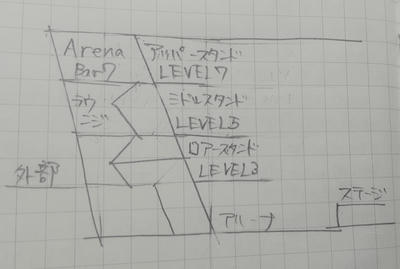 Arena
Bar7
アッパースタンド
LEVEL7
ラウ
ンジ
ミドルスタンド
LEVEL5
ロアースタンド
LEVEL3
外部
ステージ
アリーナ